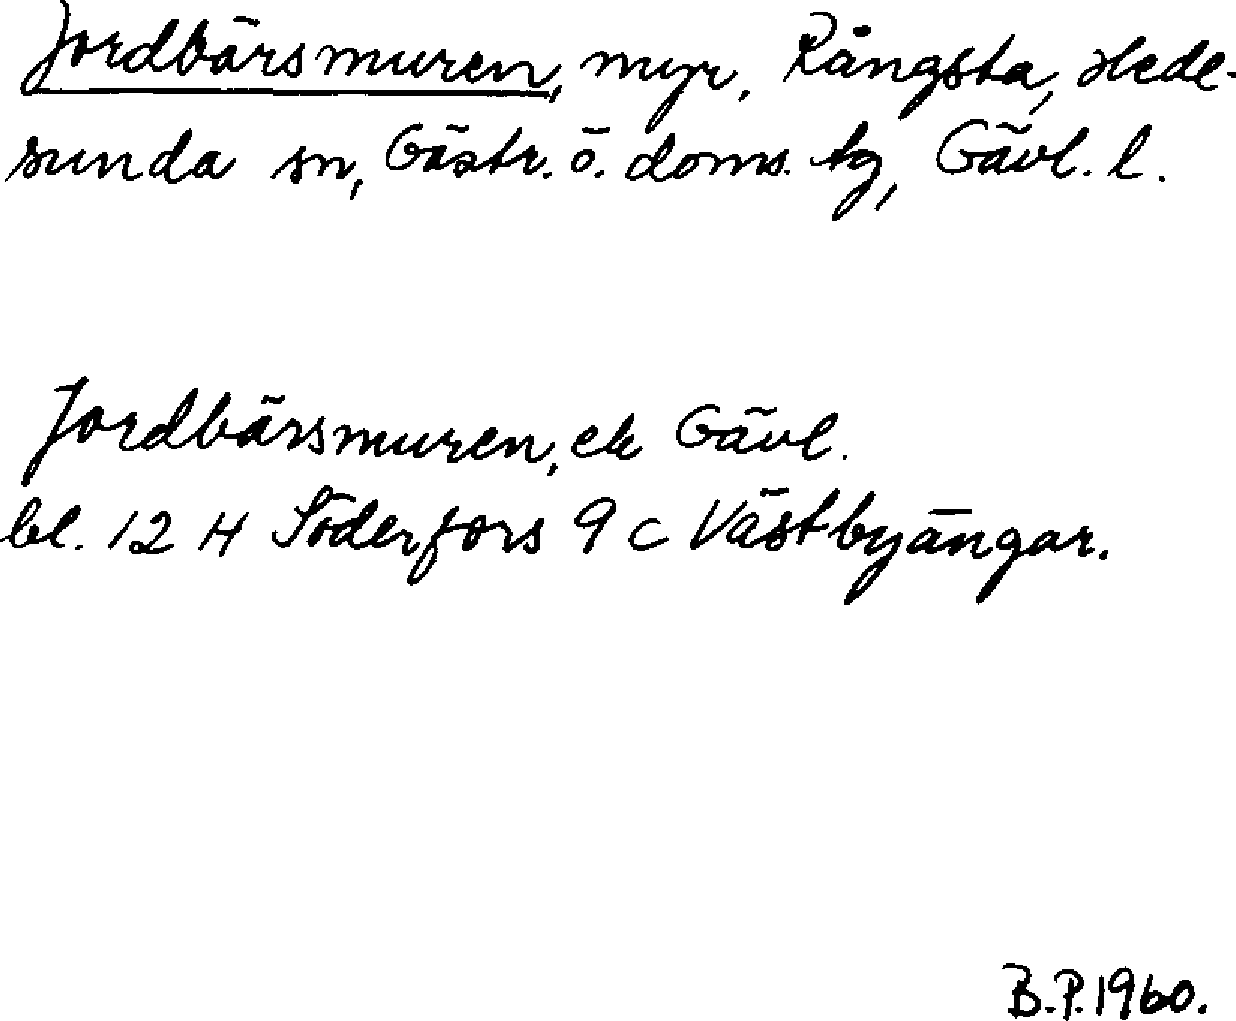 Jordbärsmuren, myr, Rångsta, Hede-
sunda sn, Gästr. ö. doms. tg, Gävl. l.
Jordbärsmuren, ek Gävl.
bl. 12 H Söderfors 9 c Västbyängar.
B.P. 1960.